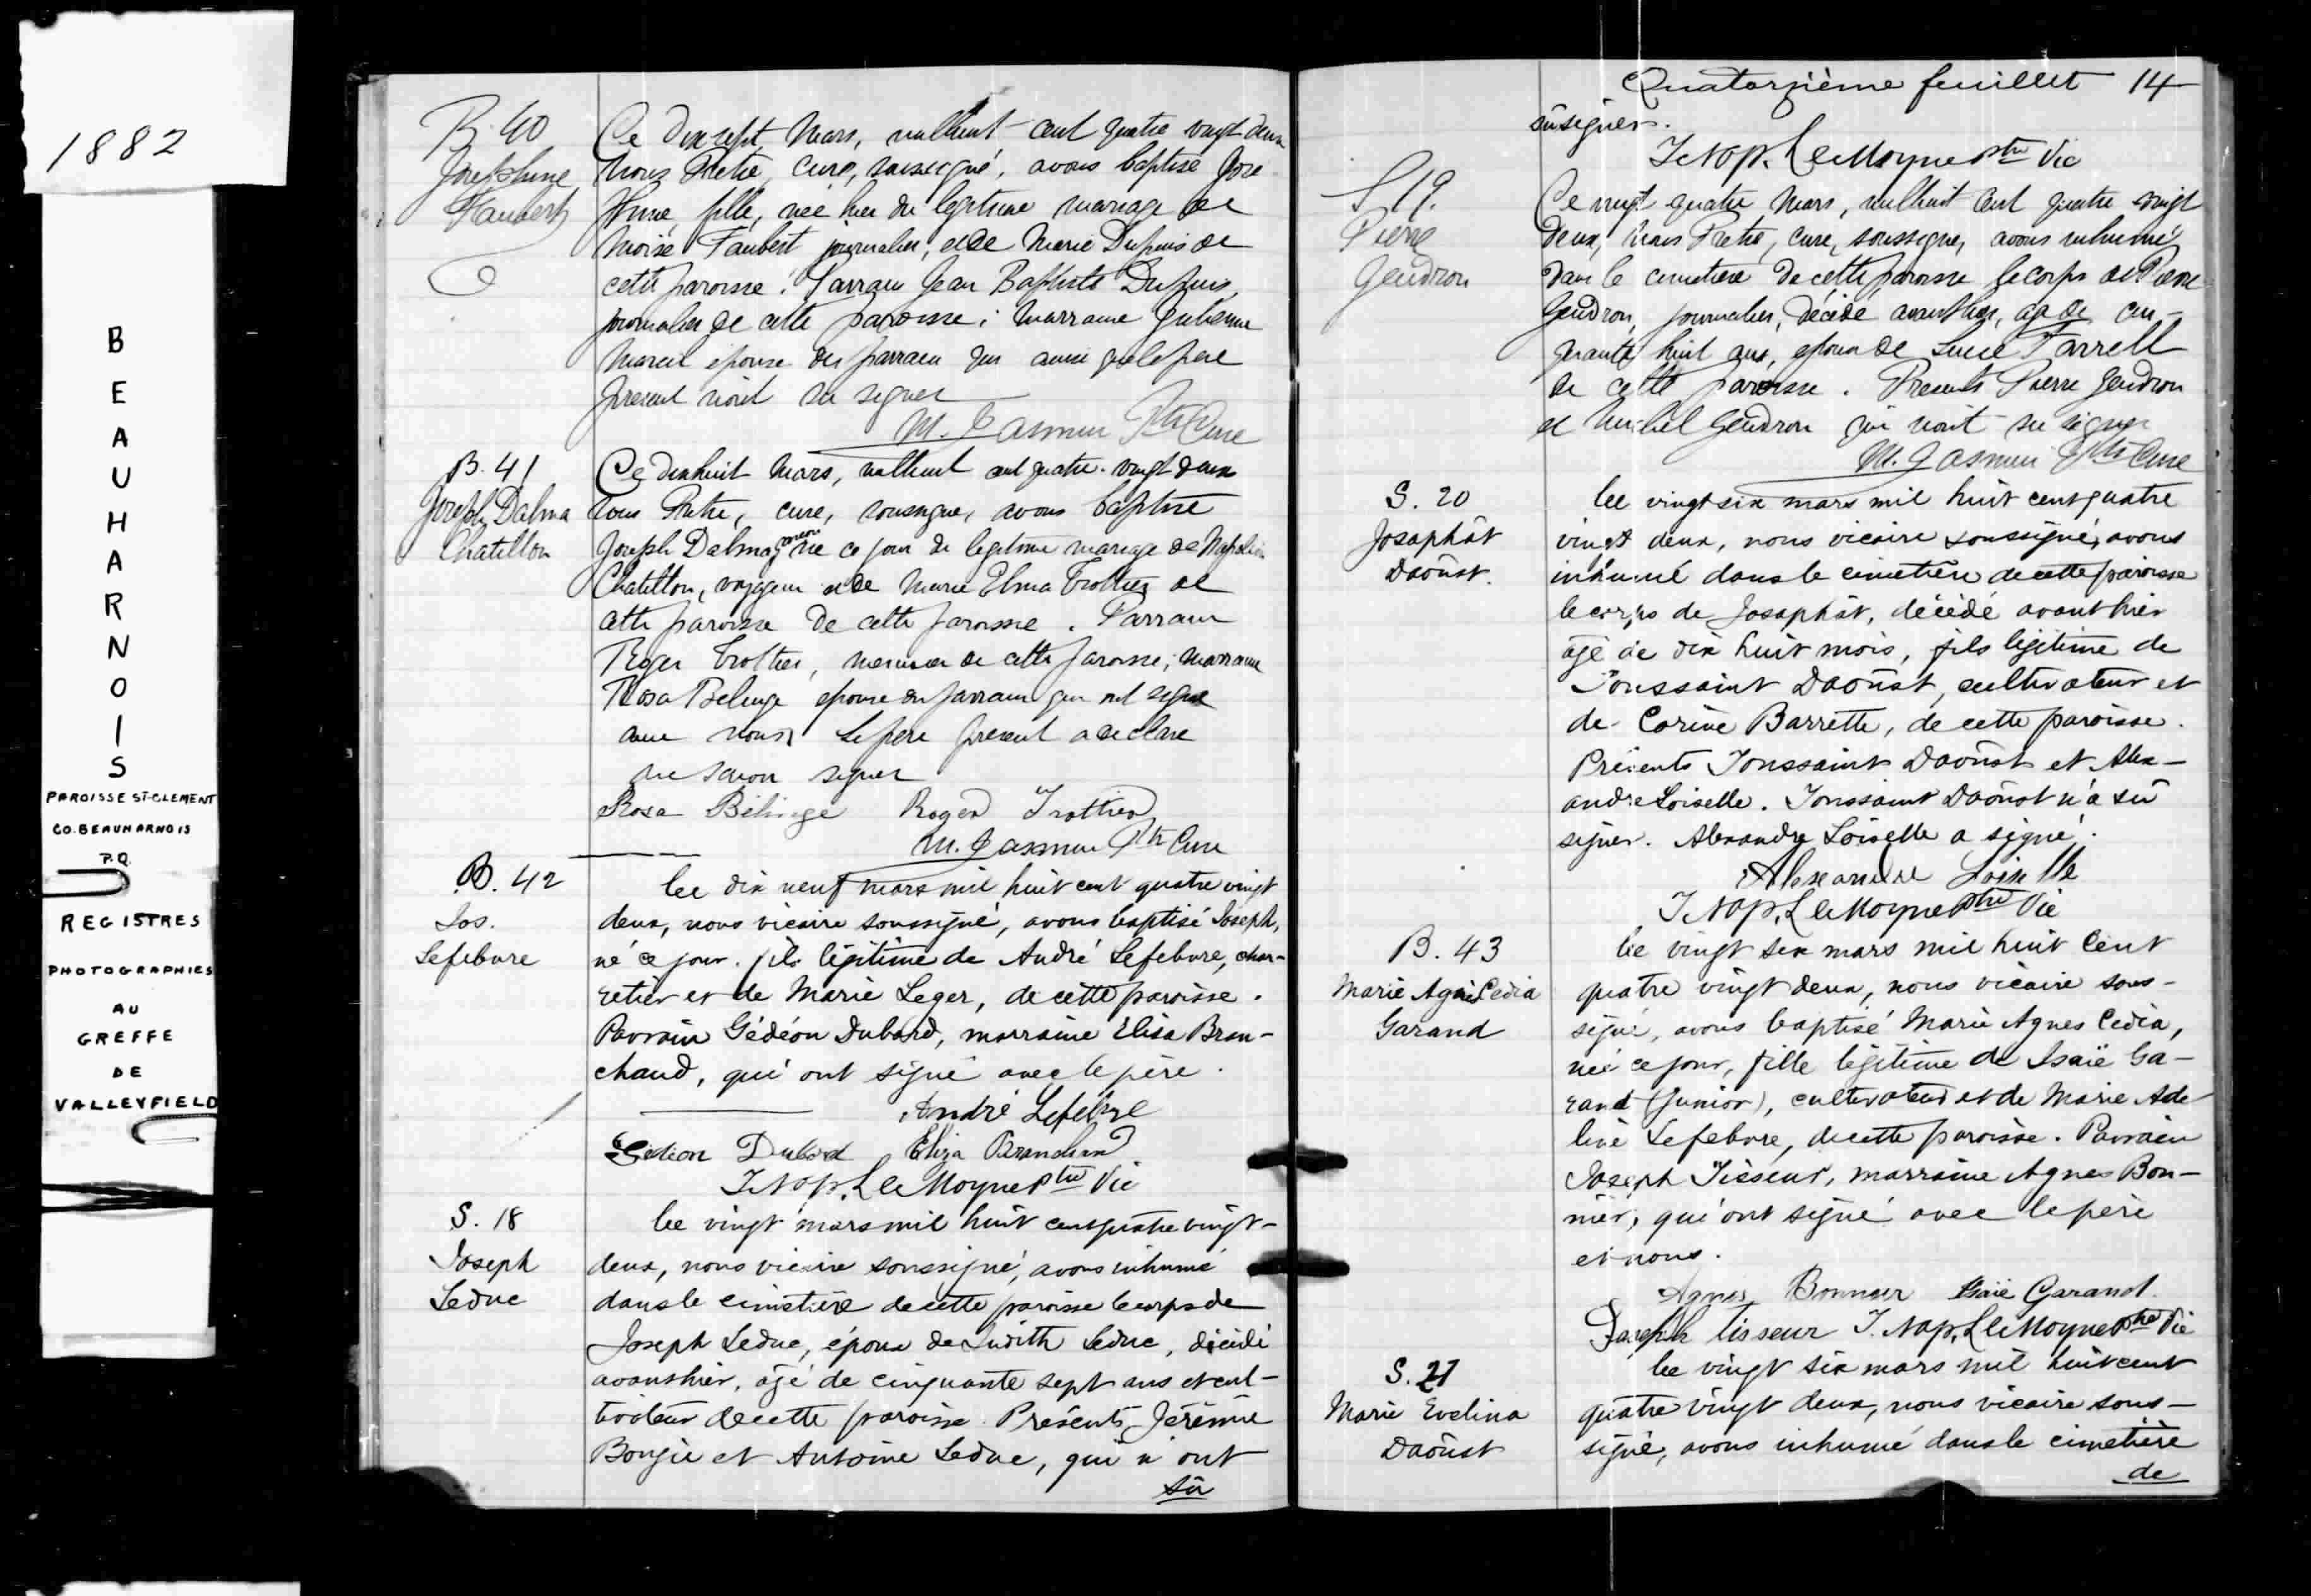 1882
BEAUHARNOIS
PAROISSE ST-CLEMENT
CO. BEAUHARNOIS
P.Q.
REGISTRES
PHOTOGRAPHIES
AU
GREFFE
DE
VALLEYFIELD
B. 40
Josephine
Faubert
Ce dix sept Mars, mil huit cent quatre vingt deux
Nous Prêtre, curé, soussigné, avons baptisé José
phine, fille, née hier du légitime mariage de
Moïse Faubert journalier, et de Marie Dupuis de
cette paroisse. Parrain Jean Baptiste Dupuis,
journalier de cette paroisse; Marraine Julienne
Mareil épouse du parrain qui ainsi que le père
présent n'ont su signer
M. Jasmin Ptre Curé
B. 41
Joseph Dalma
Chatillon
Ce dix huit Mars, mil huit cent quatre-vingt deux
nous Prêtre, curé, soussigné, avons baptisé
Joseph Dalma né ce jour de légitime mariage de Napoléon
Chatillon, voyageur et de Marie Elma Trottier de
cette paroisse de cette paroisse. Parrain
Roger Trottier, menuisier de cette paroisse; marraine
Rosa Belinge épouse du parrain qui ont signé
avec nous. Le père présent a déclaré
ne savoir signer
Rosa Bélinge Roger Trottier
M. Jasmin Ptre Curé
B. 42
Jos.
Lefebvre
Ce dix neuf mars mil huit cent quatre vingt
deux, nous vicaire soussigné, avons baptisé Joseph,
né ce jour, fils légitime de André Lefebvre, char-
retier et de Marie Leger, de cette paroisse.
Parrain Gédéon Dubord, marraine Elisa Bran-
chaud, qui ont signé avec le père.
André Lefebvre
Gédéon Dubord Eliza Branchaud
J. Nap. LeMoyne Ptre Vic
S. 18
Joseph
Leduc
Ce vingt mars mil huit cent quatre vingt-
deux, nous vicaire soussigné, avons inhumé
dans le cimetière de cette paroisse le corps de
Joseph Leduc, époux de Judith Leduc, décédé
avant hier, âgé de cinquante sept ans et cul-
tivateur de cette paroisse. Présents Jérémie
Bougie et Antoine Leduc, qui n'ont
sû
Quatorzième feuillet 14
sû signer.
J. Nap. LeMoyne Ptre Vic
S 19.
Pierre
Gendron
Ce vingt quatre Mars, mil huit cent quatre vingt
deux, nous Prêtre, curé, soussigné, avons inhumé
dans le cimetière de cette paroisse le corps de Pierre
Gendron, journalier, décédé avant hier, âgé de cin-
quante huit ans, époux de Luce Farrell
de cette paroisse. Présents Pierre Gendron
et Michel Gendron qui n'ont su signer
M. Jasmin Ptre Curé
S. 20
Josaphât
Daôust.
Ce vingt six mars mil huit cent quatre
vingt deux, nous vicaire soussigné, avons
inhumé dans le cimetière de cette paroisse
le corps de Josaphât, décédé avant hier
âgé de dix huit mois, fils légitime de
Toussaint Daôust, cultivateur et
de Corine Barrette, de cette paroisse.
Présents Toussaint Daôust et Alex-
andre Loiselle. Toussaint Daôust n'a sû
signer. Alexandre Loiselle a signé.
Alexandre Loiselle
J. Nap. LeMoyne Ptre Vic
B. 43
Marie Agnès Cedia
Garand
Ce vingt six mars mil huit cent
quatre vingt deux, nous vicaire sous-
signé, avons baptisé Marie Agnes Cedia,
née ce jour, fille légitime de Isaïe Ga-
rand (Junior), cultivateur et de Marie Ade-
line Lefebvre, de cette paroisse. Parrain
Joseph Tisseur, marraine Agnes Bon-
nier, qui ont signé avec le père
et nous.
Agnes Bonnier Isaïe Garand.
Joseph tisseur J. Nap. LeMoyne Ptre Vic
S. 21
Marie Evelina
Daôust
Ce vingt six mars mil huit cent
quatre vingt deux, nous vicaire sous-
signé, avons inhumé dans le cimetière
de